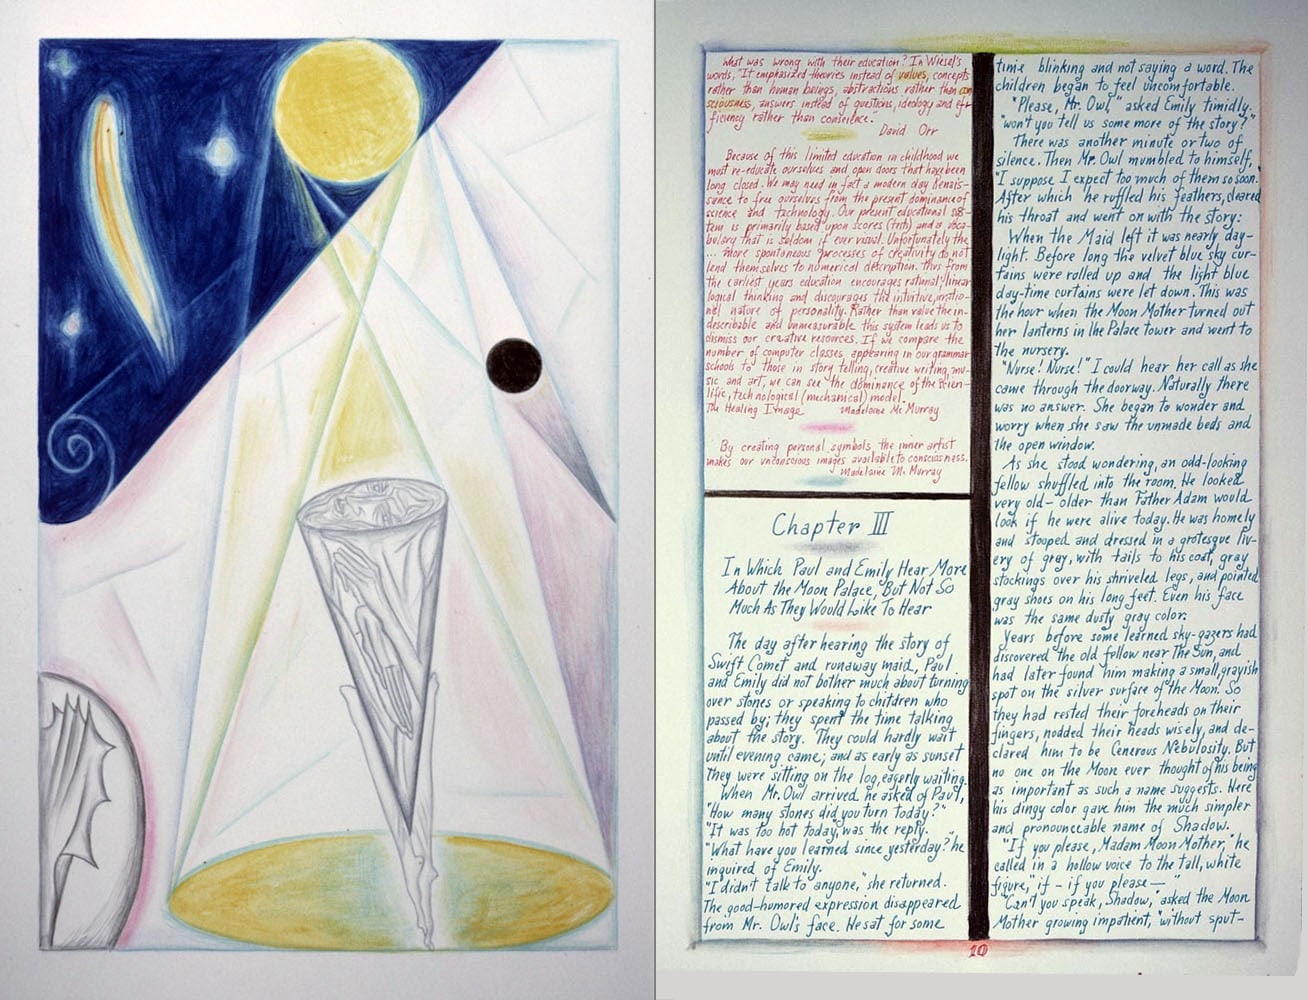 What was wrong with their education? In Wiesel's
words, "It emphasized theories instead of values, concepts
rather than human beings, abstractions rather than con
sciousness, answers instead of questions, ideology and ef-
ficiency rather than conscience."
David Orr
Because of this limited education in childhood we
must re-educate ourselves and open doors that have been
long closed. We may need in fact a modern day Renais-
sance to free ourselves from the present dominance of
science and technology. Our present educational sys-
tem is primarily based upon scores (tests) and a voca-
bulary that is seldom if ever visual. Unfortunately the
... more spontaneous processes of creativity do not
lend themselves to numerical description. Thus from
the earliest years education encourages rational, linear
logical thinking and discourages the intuitive, irratio-
nal nature of personality. Rather than value the in-
describable and unmeasurable this system leads us to
dismiss our creative resources. If we compare the
number of computer classes, appearing in our grammar
schools to those in story telling, creative writing, mu-
sic and art, we can see the dominance of the scien-
tific, technological (mechanical) model.
The Healing Image Madelaine Mc Murray
By creating personal symbols the inner artist
makes our unconscious images available to consciosness.
Madelaine M. Murray
Chapter III
In Which Paul and Emily Hear More
About the Moon Palace, But Not So
Much As They Would Like To Hear
The day after hearing the story of
Swift Comet and runaway maid, Paul
and Emily did not bother much about turning
over stones or speaking to children who
passed by; they spent the time talking
about the story. They could hardly wait
until evening came; and as early as sunset
they were sitting on the log, eagerly waiting.
When Mr. Owl arrived he asked of Paul,
"How many stones did you turn today?"
"It was too hot today," was the reply.
"What have you learned since yesterday?" he
inquired of Emily.
"I didn't talk to anyone," she returned.
The good-humored expression disappeared
from Mr. Owl's face. He sat for some
time blinking and not saying a word. The
children began to feel uncomfortable.
"Please, Mr. Owl," asked Emily timidly.
"won't you tell us some more of the story?"
There was another minute or two of
silence. Then Mr. Owl mumbled to himself,
"I suppose I expect too much of them so soon."
After which he ruffled his feathers, cleared
his throat and went on with the story:
When the Maid left it was nearly day-
light. Before long the velvet blue sky cur-
tains were rolled up and the light blue
day-time curtains were let down. This was
the hour when the Moon Mother turned out
her lanterns in the Palace Tower and went to
the nursery.
"Nurse! Nurse!" I could hear her call as she
came through the doorway. Naturally there
was no answer. She began to wonder and
worry when she saw the unmade beds and
the open window.
As she stood wondering, an odd-looking
fellow shuffled into the room. He looked
very old - older than Father Adam would
look if he were alive today. He was homely
and stooped and dressed in a grotesque liv-
ery of gray, with tails to his coat, gray
stockings over his shriveled legs, and pointed
gray shoes on his long feet. Even his face
was the same dusty gray color.
Years before some learned sky-gazers had
discovered the old fellow near The Sun, and
had later found him making a small, grayish
spot on the silver surface of the Moon. So
they had rested their foreheads on their
fingers, nodded their heads wisely, and de-
clared him to be Generous Nebulosity. But
no one on the Moon ever thought of his being
as important as such a name suggests. Here
his dingy color gave him the much simpler
and pronounceable name of Shadow.
"If you please, Madam Moon Mother," he
called in a hollow voice to the tall, white
figure, "if - if you please — "
"Can't you speak, Shadow," asked the Moon
Mother growing impatient, "without sput-
10